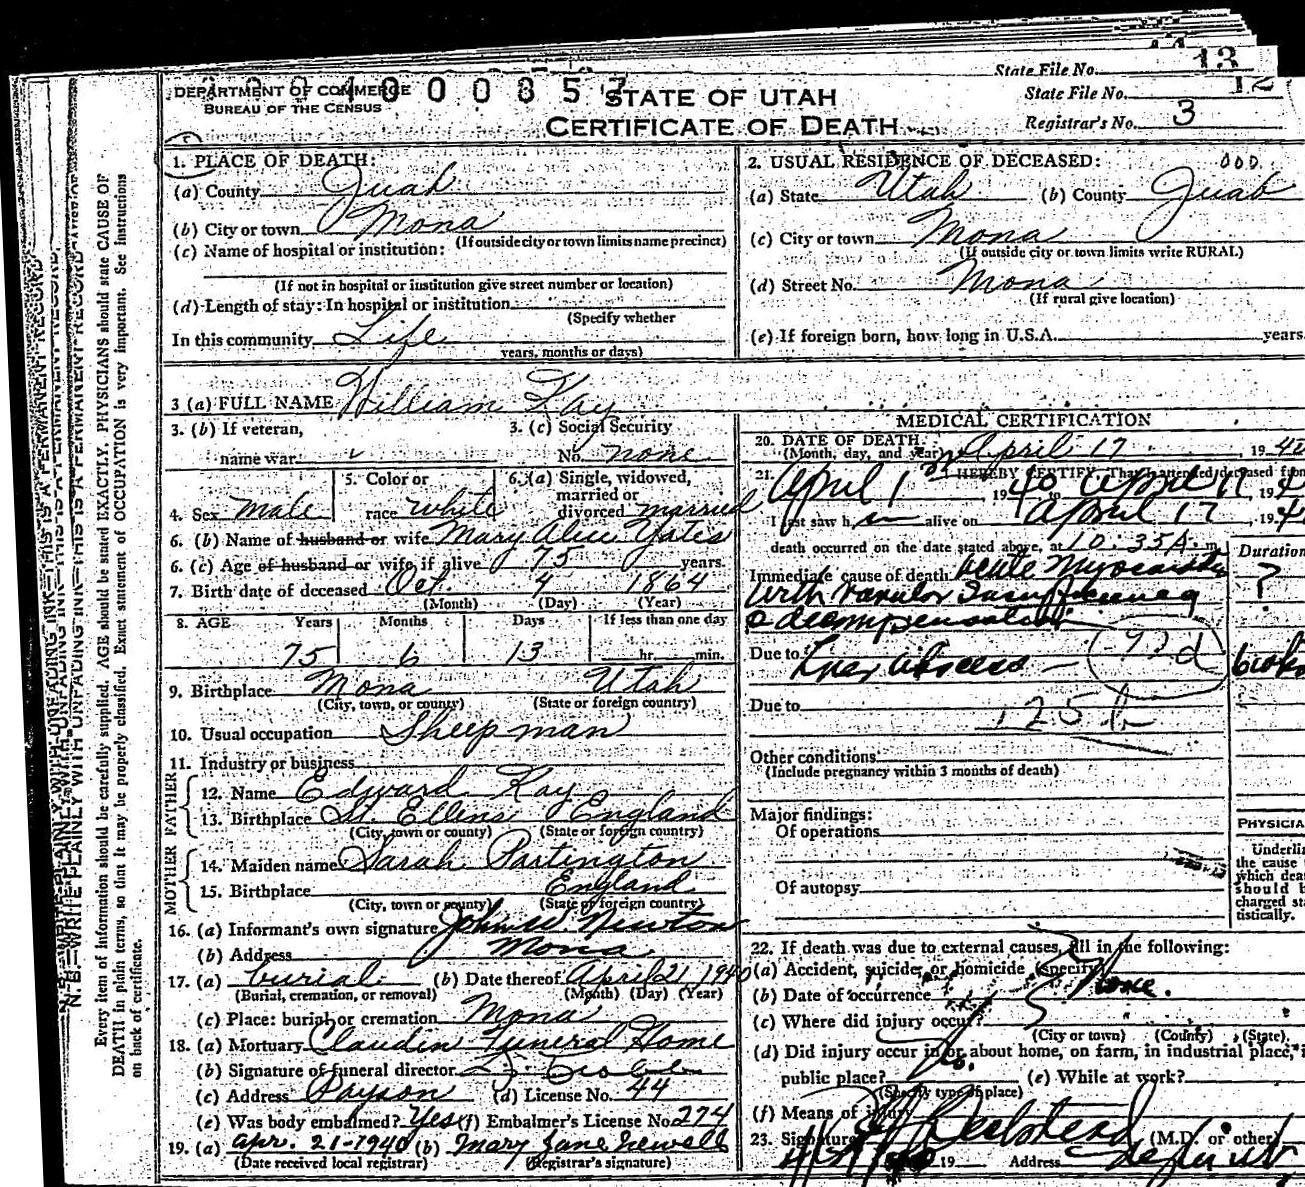 State File No. 13
State File No. 12
DEPARTMENT OF COMMERCE
BUREAU OF THE CENSUS
STATE OF UTAH
CERTIFICATE OF DEATH
Registrar's No. 3
1. PLACE OF DEATH:
(a) County Juab
(b) City or town Mona
(If outside city or town limits name precinct)
(c) Name of hospital or institution:
(If not in hospital or institution give street number or location)
(d) Length of stay: In hospital or institution
(Specify whether
In this community Life
years, months or days)
2. USUAL RESIDENCE OF DECEASED: 000.
(a) State Utah (b) County Juab
(c) City or town Mona
(If outside city or town limits write RURAL)
(d) Street No. Mona
(If rural give location)
(e) If foreign born, how long in U.S.A. years
3 (a) FULL NAME William Kay
3. (b) If veteran,
name war
3. (c) Social Security
No. none
4. Sex Male
5. Color or
race white
6. (a) Single, widowed,
married or
divorced married
6. (b) Name of husband or wife Mary Alice Yates
6. (c) Age of husband or wife, if alive 75 years.
7. Birth date of deceased Oct. 4 1864
(Month) (Day) (Year)
8. AGE Years Months Days If less than one day
75 6 13 hr. min.
9. Birthplace Mona Utah
(City, town, or county) (State or foreign country)
10. Usual occupation Sheep man
11. Industry or business
FATHER
12. Name Edward Kay
13. Birthplace St. Ellens England
(City, town or county) (State or foreign country)
MOTHER
14. Maiden name Sarah Partington
15. Birthplace England
(City, town or county) (State or foreign country)
16. (a) Informant's own signature John W. Newton
(b) Address Mona
17. (a) burial (b) Date thereof April 21, 1940
(Burial, cremation, or removal) (Month) (Day) (Year)
(c) Place: burial or cremation Mona
18. (a) Mortuary Claudin Funeral Home
(b) Signature of funeral director
(c) Address Payson (d) License No. 44
(e) Was body embalmed? Yes (f) Embalmer's License No. 274
19. (a) Apr. 21-1940 (b) Mary Jane Newell
(Date received local registrar) (Registrar's signature)
MEDICAL CERTIFICATION
20. DATE OF DEATH
(Month, day, and year) April 17 1940
21. I HEREBY CERTIFY, That I attended deceased from
April 1st 1940 to April 17, 194
I last saw h im alive on April 17, 194
death occurred on the date stated above, at 10:35 A. m.
Duration
Immediate cause of death acute
?
Due to Abscess
Due to
Other conditions
(Include pregnancy within 3 months of death)
Major findings:
Of operations
Of autopsy
PHYSICIA
Underli
the cause
which dea
should b
charged sta
tistically.
22. If death was due to external causes, fill in the following:
(a) Accident, suicide, or homicide (specify) None.
(b) Date of occurrence
(c) Where did injury occur?
(City or town) (County) (State)
(d) Did injury occur in or about home, on farm, in industrial place, i
public place? No.
(Specify type of place)
(e) While at work?
(f) Means of injury
23. Signature (M.D. or other)
19 Address
N. B.—WRITE PLAINLY WITH UNFADING INK—THIS IS A PERMANENT RECORD
Every item of information should be carefully supplied. AGE should be stated EXACTLY. PHYSICIANS should state CAUSE OF
DEATH in plain terms, so that it may be properly classified. Exact statement of OCCUPATION is very important. See instructions
on back of certificate.